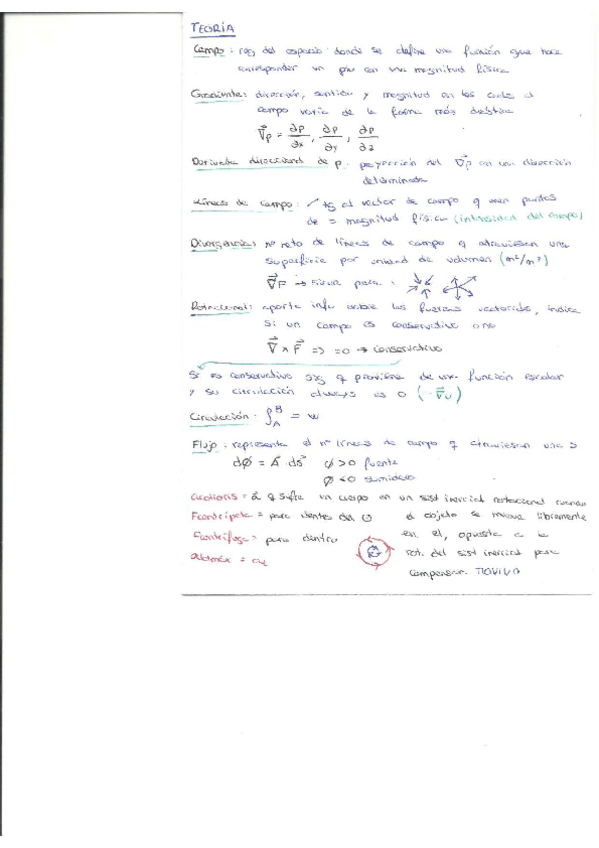 TEORÍA
Campo: reg del espacio donde se define una función que hace
corresponder un pto con una magnitud física
Gradiente: dirección, sentido y magnitud en los cuales el
campo varía de la forma más drástica
∇⃗p = ∂p/∂x, ∂p/∂y, ∂p/∂z
Derivada direccional de p: proyección del ∇⃗p en una dirección
determinada
Líneas de campo: tg al vector de campo q unen puntos
de = magnitud física (intensidad del campo)
Divergencia: nº neto de líneas de campo q atraviesan una
superficie por unidad de volumen (m²/m³)
∇⃗F → sirve para:
Rotacional: aporta info sobre las fuerzas vectoriales, indica
si un campo es conservativo o no
∇⃗ x F⃗ => =0 → conservativo
Si es conservativo sig q proviene de una función escalar
y su circulación always es 0 (-∇⃗U)
Circulación: ∫ A B = W
Flujo: representa el nº líneas de campo q atraviesan una S
dΦ = A⃗ ds⃗ Φ>0 fuente
Φ<0 sumidero
Coriolis = a q sufre un cuerpo en un sist inercial rotacional cuando
Fcentrípeta = para dentro del el objeto se mueve libremente
Fcentrífuga = para dentro en el, opuesta a la
rot. del sist inercial para
compensar.